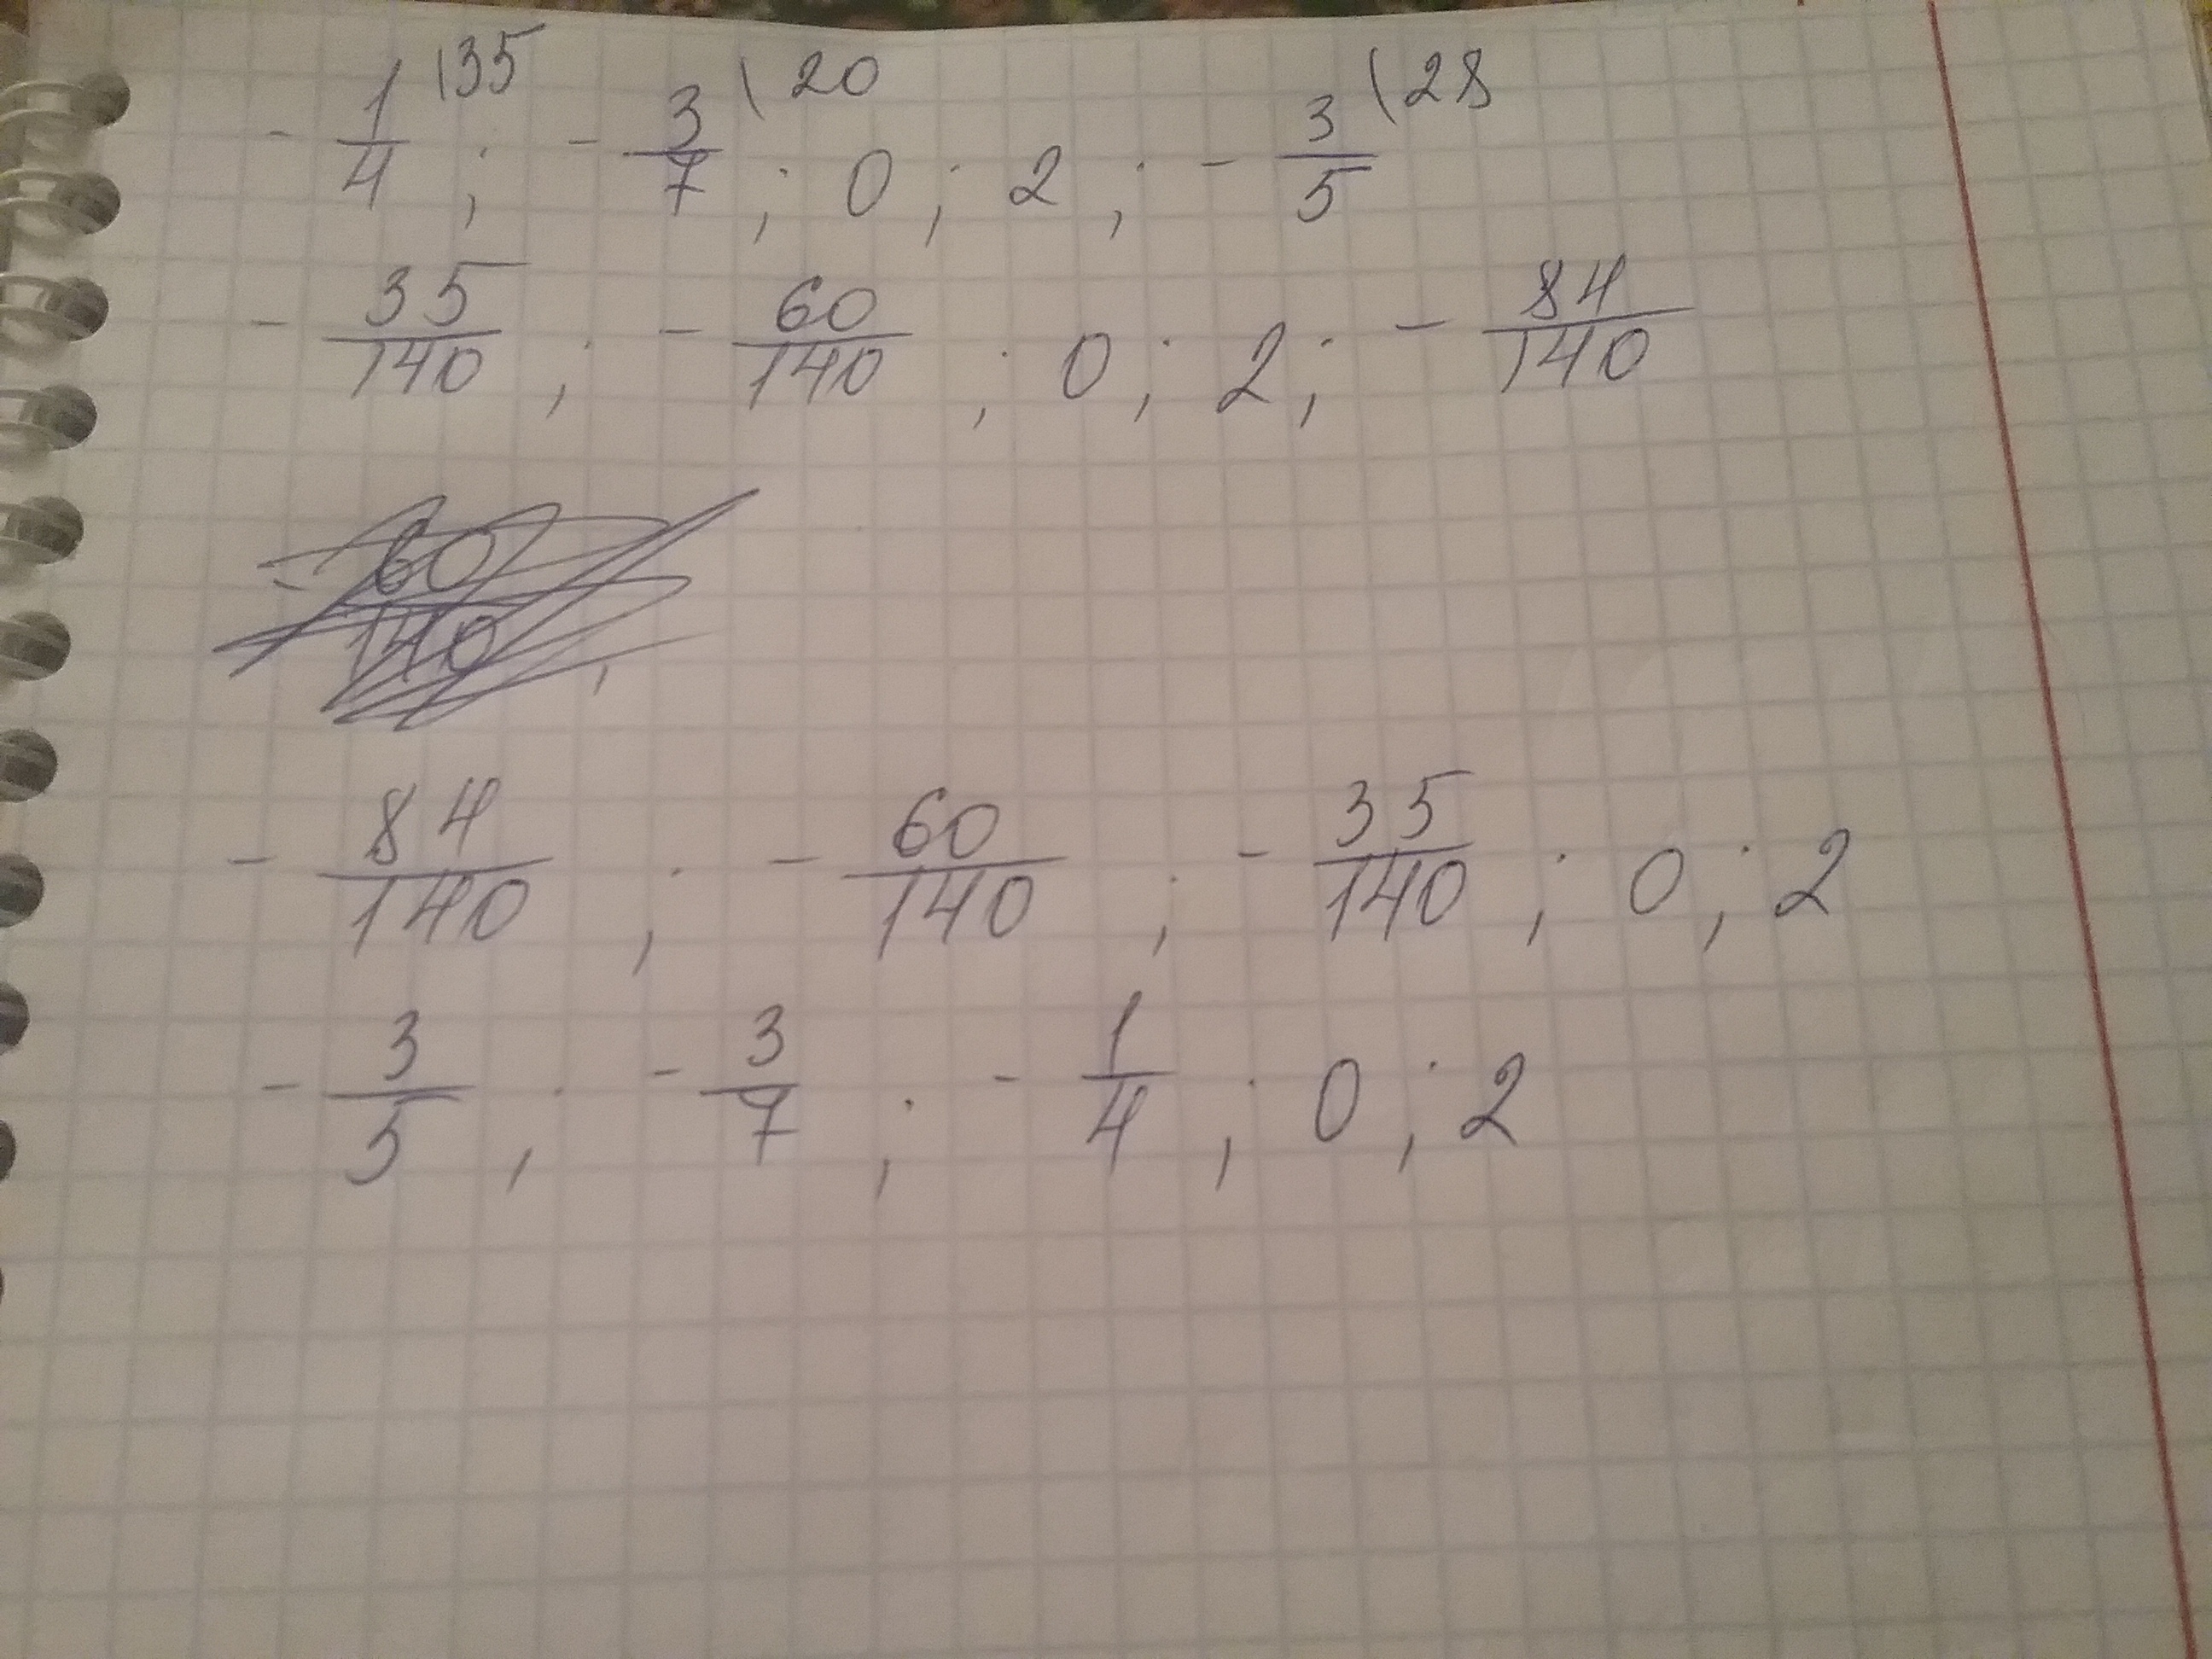 - 1/4 \35 ; - 3/7 \20 ; 0 ; 2 ; - 3/5 \28
- 35/140 ; - 60/140 ; 0 ; 2 ; - 84/140
- 60/140 ,
- 84/140 ; - 60/140 ; - 35/140 ; 0 ; 2
- 3/5 ; - 3/7 ; - 1/4 ; 0 ; 2